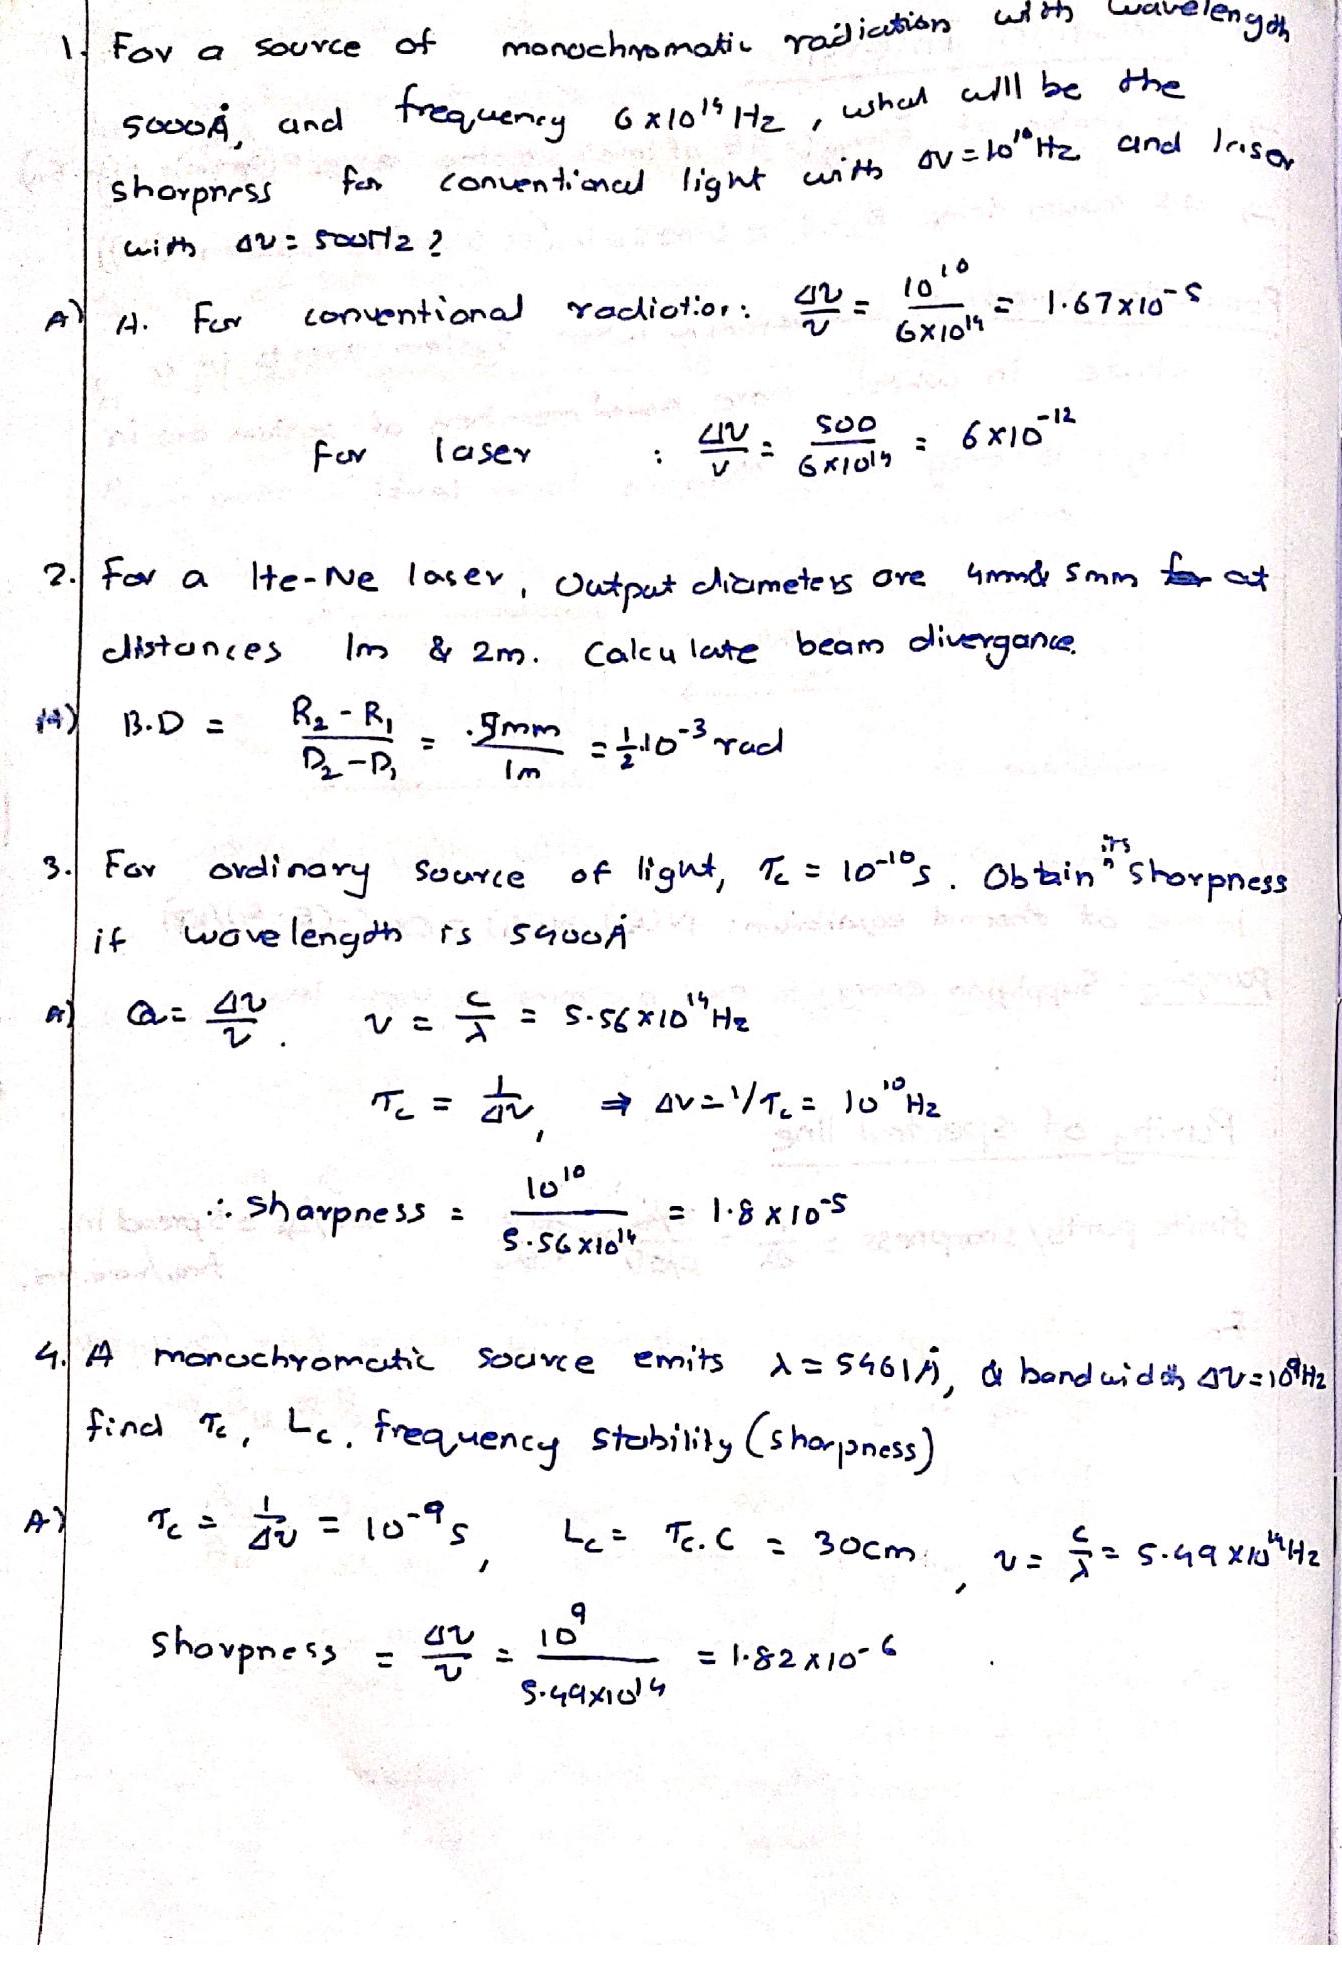 1. For a source of monochromatic radiation with wavelength
5000Å, and frequency 6x10¹⁴ Hz, what will be the
sharpness for conventional light with Δν=10¹⁰Hz and laser
with Δν=500Hz?
A) A. For conventional radiation: Δν/ν = 10¹⁰/6X10¹⁴ = 1.67x10⁻⁵
For laser : Δν/ν = 500/6x10¹⁴ = 6x10⁻¹²
2. For a He-Ne laser, Output diameters are 4mm& 5mm at
distances 1m & 2m. Calculate beam divergance.
A) B.D = R₂-R₁/D₂-D₁ = .5mm/1m = ½.10⁻³ rad
3. For ordinary source of light, τc = 10⁻¹⁰s. Obtain its sharpness
if wavelength is 5400Å
A) Q = Δν/ν. ν = c/λ = 5.56x10¹⁴Hz
τc = 1/Δν, ⇒ Δν=1/τc = 10¹⁰Hz
∴ Sharpness = 10¹⁰/5.56x10¹⁴ = 1.8x10⁻⁵
4. A monochromatic source emits λ=5461Å, & bandwidth Δν=10⁹Hz
find τc, Lc, frequency stability (sharpness)
A) τc = 1/Δν = 10⁻⁹s, Lc = τc.c = 30cm, ν = c/λ = 5.49x10¹⁴Hz
Sharpness = Δν/ν = 10⁹/5.49x10¹⁴ = 1.82x10⁻⁶